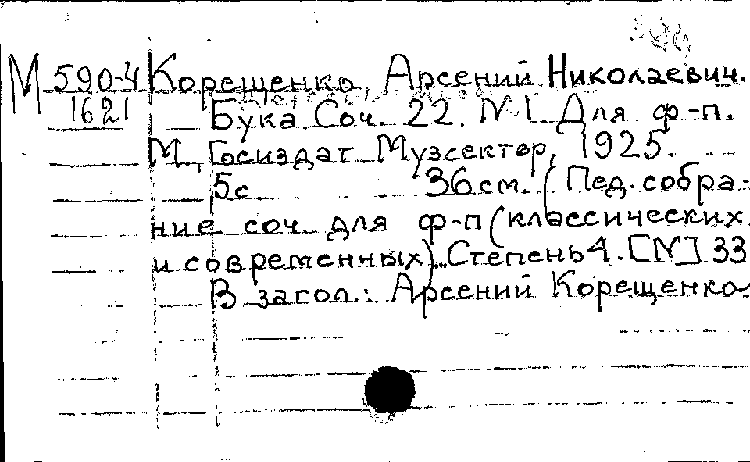 М 590-4 Корещенко, Арсений Николаевич.
1621 Бука Соч. 22. №1. Для ф-п.
М., Госиздат. Музсектор, 1925.
5с 36см. (Пед. собра-
ние соч. для ф-п (классических
и современных). Степень 4. [№] 33
В загол.: Арсений Корещенко.